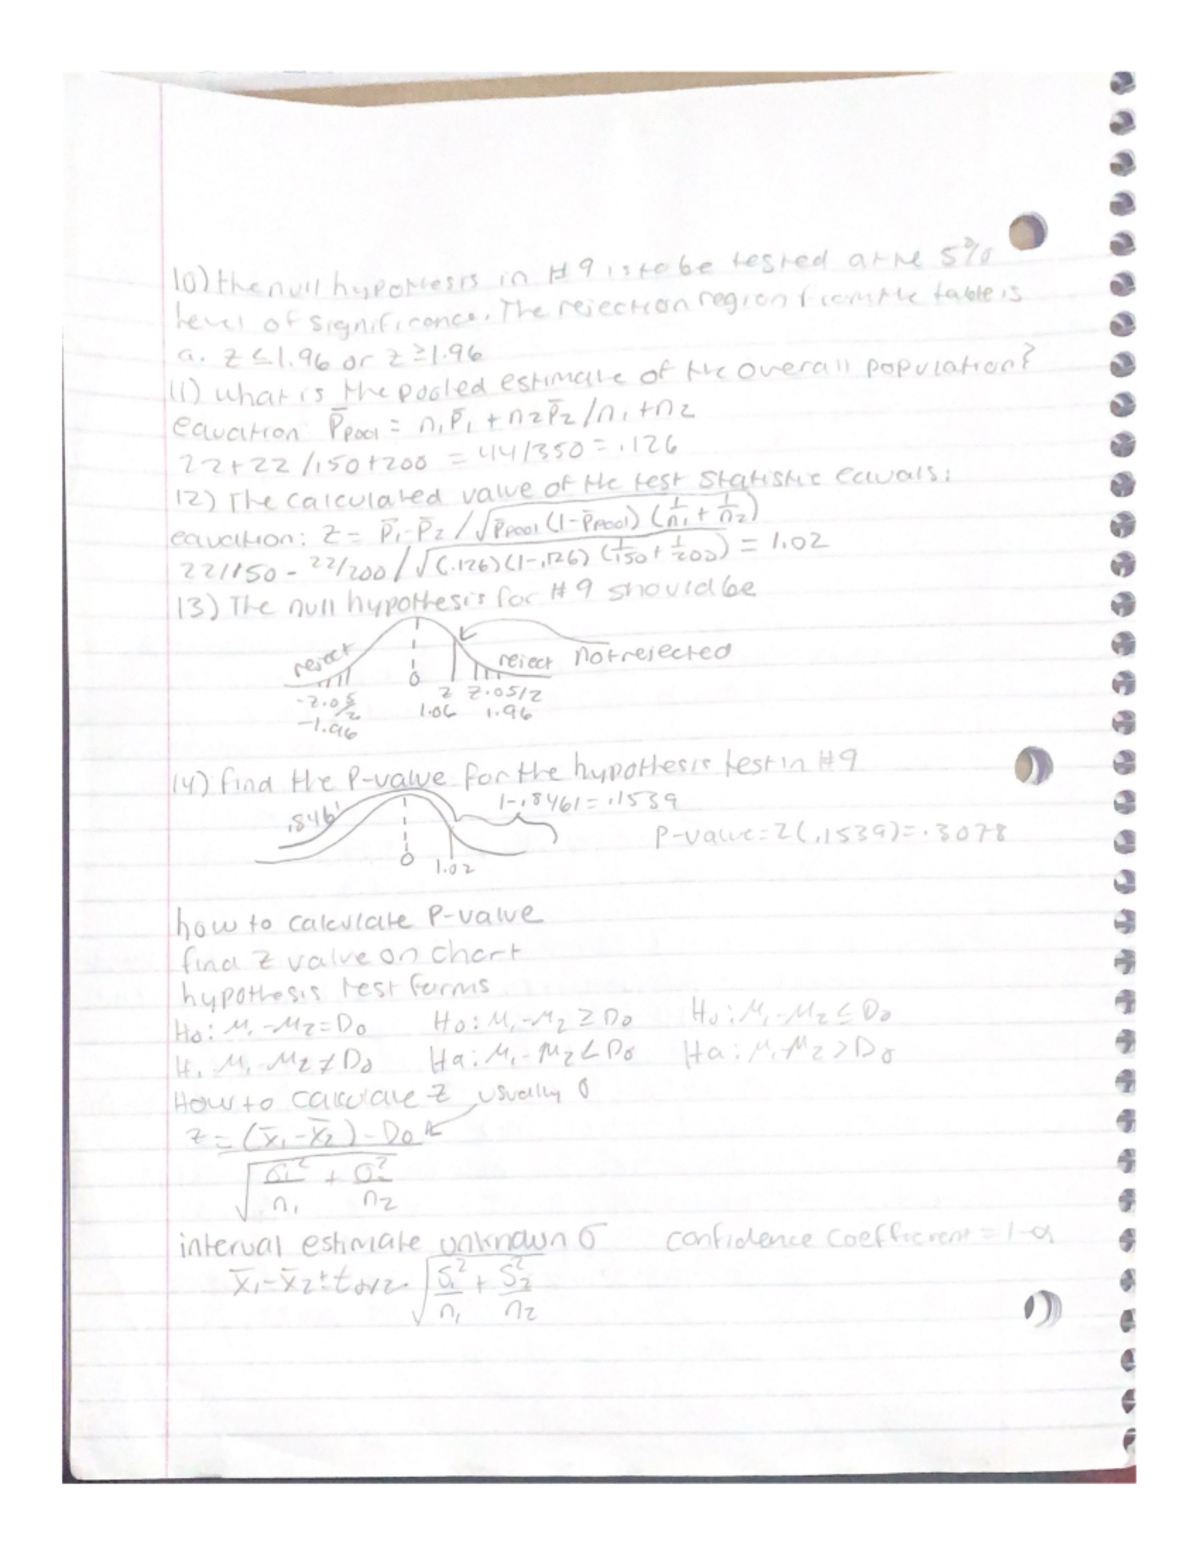 10) the null hypothesis in #9 is to be tested at the 5%
level of significance. The rejection region from the table is
a. z ≤ 1.96 or z ≥ 1.96
11) what is the pooled estimate of the overall population?
equation: P̄pool = n₁P̄₁ + n₂P̄₂ / n₁ + n₂
22+22 / 150+200 = 44/350 = .126
12) The calculated value of the test statistic equals:
equation: z = P̄₁-P̄₂ / √P̄pool (1-P̄pool) (1/n₁ + 1/n₂)
22/150 - 22/200 / √(.126)(1-.126) (1/150 + 1/200) = 1.02
13) The null hypothesis for #9 should be
reject 0 reject not rejected
-z.05/2 z z.05/2
-1.96 1.06 1.96
14) find the P-value for the hypothesis test in #9
.8461 1-.8461=.1539
0 1.02 P-value=2(.1539)=.3078
how to calculate P-value
find z value on chart
hypothesis test forms
H₀: μ₁-μ₂=D₀ H₀: μ₁-μ₂ ≥ D₀ H₀: μ₁-μ₂ ≤ D₀
H₁ μ₁-μ₂ ≠ D₀ Ha: μ₁-μ₂ < D₀ Ha: μ₁-μ₂ > D₀
How to calculate z usually 0
z = (x̄₁-x̄₂) - D₀
√ σ₁²/n₁ + σ₂²/n₂
interval estimate unknown σ confidence coefficient = 1-α
x̄₁-x̄₂ ± tα/2 · √ S₁²/n₁ + S₂²/n₂